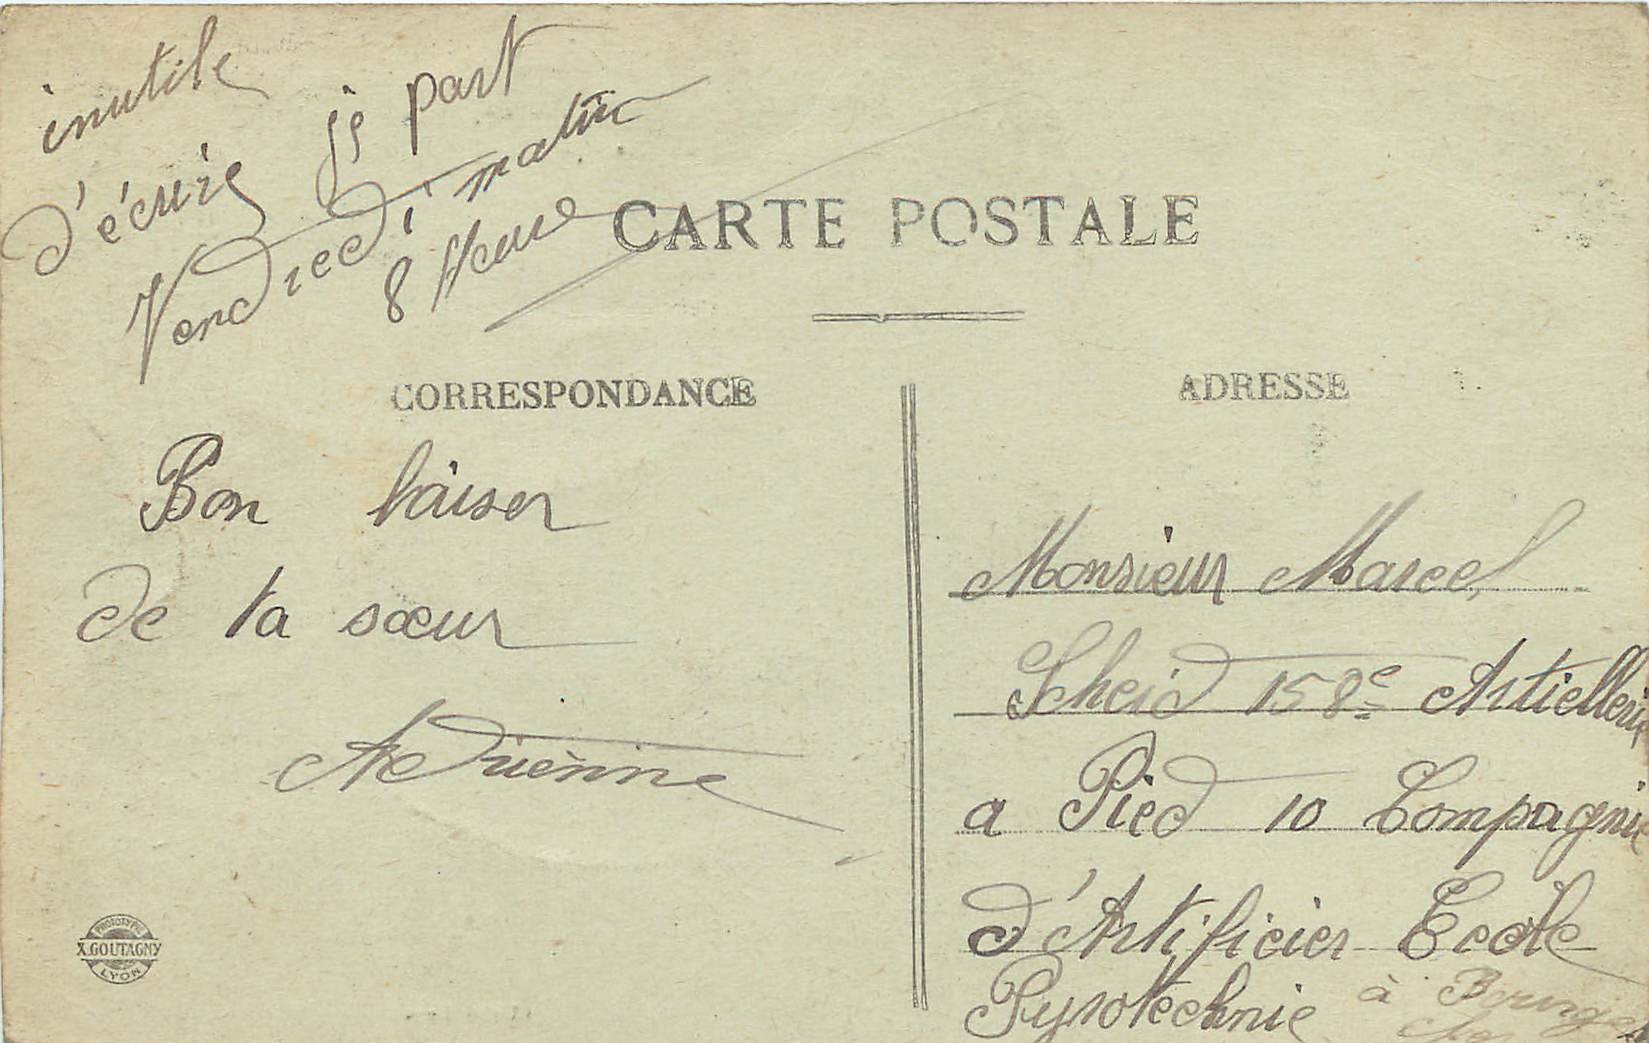 inutile
d'écrire je part
Vendredi matin
8 Heure
CARTE POSTALE
CORRESPONDANCE
Bon baiser
de ta sœur
Adriènne
ADRESSE
Monsieur Marcel
Scheid 158e Artiellerie
a Pied 10 Compagnie
d'Artificier Ecole
Pyrotechnie à Bourges
PHOTOTYPIE
X. GOUTAGNY
LYON